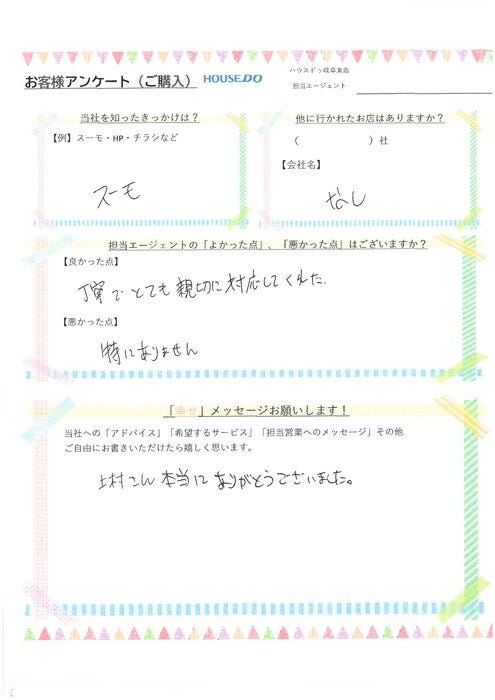 お客様アンケート（ご購入） HOUSEDO
ハウスドゥ岐阜東店
担当エージェント
当社を知ったきっかけは？
【例】スーモ・HP・チラシなど
スーモ
他に行かれたお店はありますか？
（　　　　　）社
【会社名】
なし
担当エージェントの「よかった点」、「悪かった点」はございますか？
【良かった点】
丁寧でとても親切に対応してくれた.
【悪かった点】
特にありません
「幸せ」メッセージお願いします！
当社への「アドバイス」「希望するサービス」「担当営業へのメッセージ」その他
ご自由にお書きいただけたら嬉しく思います。
上村さん 本当に ありがとうございました。